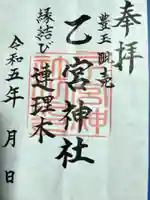 奉拝
豊玉明売
乙宮神社
縁結び 連理木
令和五年 月 日